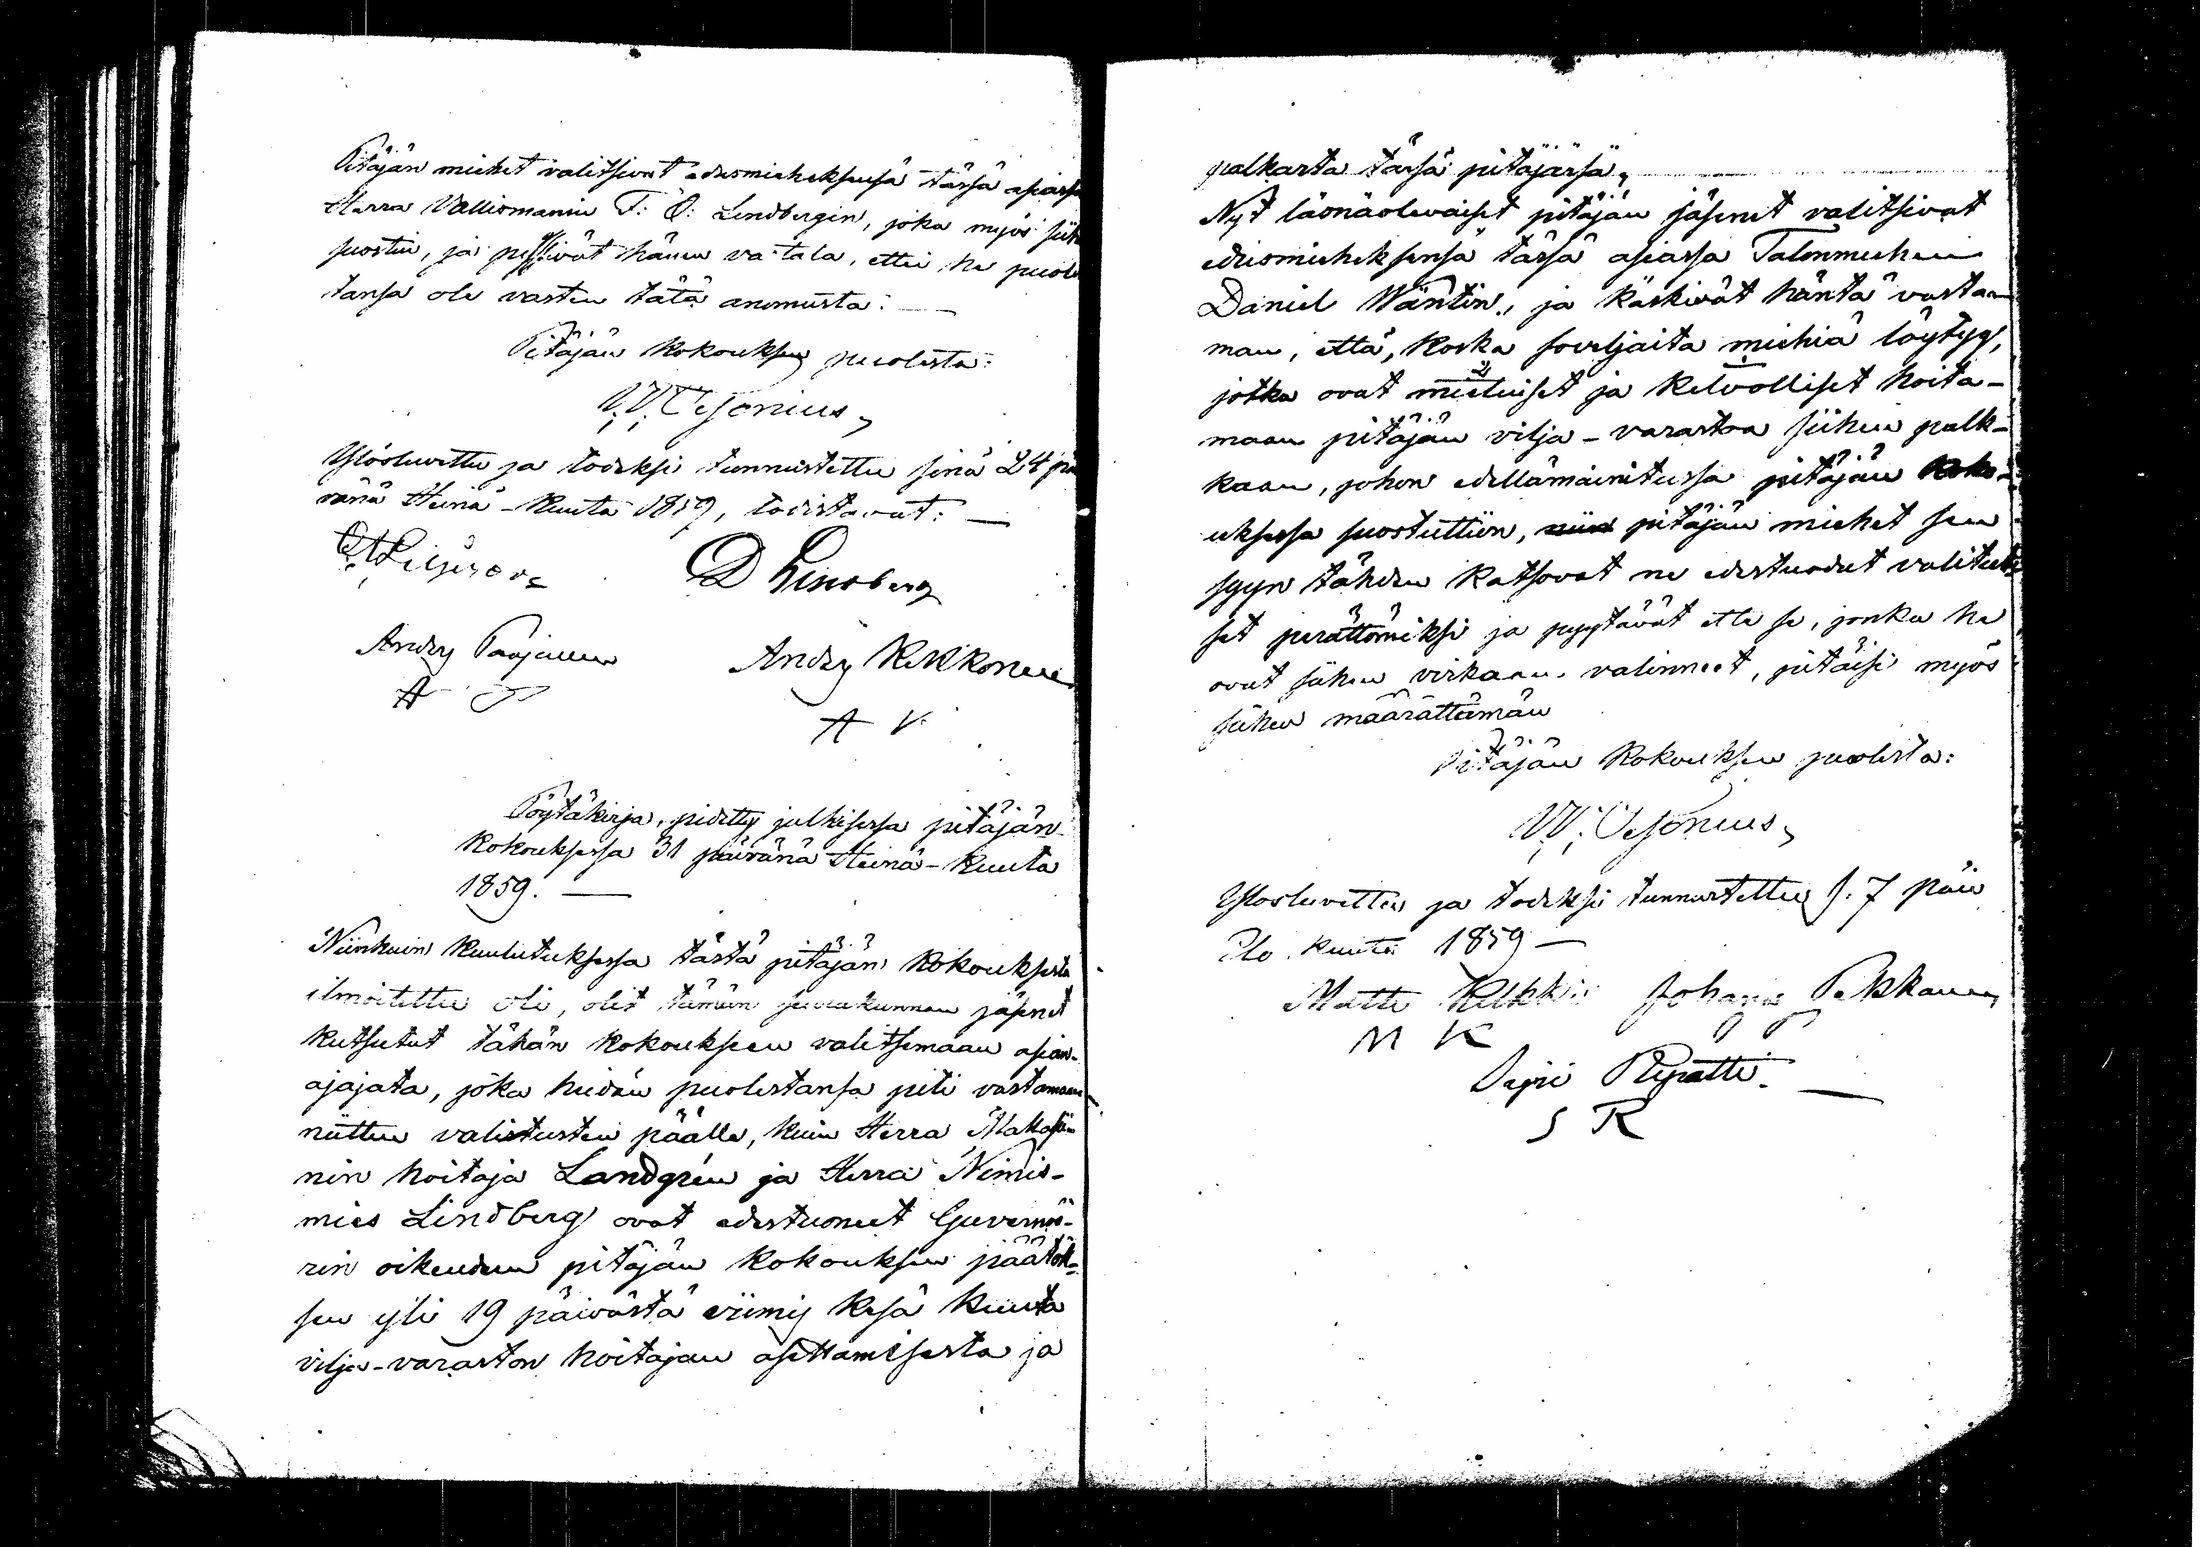 Pitäjän miehet valitsivat edusmieheksensä tässä asiassa
Herra Vallesmannin F: O: Lindbergin, joka myös siih
suostui, ja pyysivät hänen va-tata, ettei he puoles
tansa ole vasten tätä anomusta:
Pitäjän Kokouksen puolesta:
W. Cesonius,
Ylösluvettu ja todeksi tunnustettu sinä 24 päi
vänä Heinä-Kuuta 1859, todistavat: —
D Lindberg
Andrs Paajanen
Andrs Kekkonen
A P
A K
Pöytäkirja, pidetty julkisessa pitäjän
Kokouksessa 31 päivänä Heinä-Kuuta
1859. —
Niinkuin Kuulutuksessa tästä pitäjän Kokouksesta
ilmoitettu oli, olit tämän seurakunnan jäsenet
Kutsutut tähän Kokoukseen valitsemaan asian-
ajajata, joka heidän puolestansa piti vastamaan
niitten valitusten päälle, kuin Herra Makasi-
nin hoitaja Landgren ja Herra Nimis-
mies Lindberg ovat edestuoneet Guvernöö-
rin oikeuden pitäjän Kokouksen päätök-
sen yli 19 päivästä viimis Kesä Kuuta
vilja-varaston hoitajan asettamisesta ja
palkasta tässä pitäjässä,
Nyt läsnäolevaiset pitäjän jäsenet valitsivat
edusmieheksensä tässä asiassa Talonmiehen
Daniel Wäntin, ja Käskivät häntä vastaa-
man, että, Koska soveljaita miehiä löytyy,
jotka ovat mieluiset ja Kelvolliset hoita-
maan pitäjän vilja-varastoa siihen palk-
kaan, johon edellämainitussa pitäjän Koko-
uksessa suostuttiin, niin pitäjän miehet sen
syyn tähden Katsovat ne edestuodut valituk-
set perättömiksi ja pyytävät että se, jonka he
ovat siihen virkaan valinneet, pitäisi myös
siihen määrättämän
Pitäjän Kokouksen puolesta:
W. Cesonius,
Ylösluvettu ja todeksi tunnustettu s. 7 päiv
Elo Kuuta 1859 —
Matti Kukki Johanes Pekkanen
M K J P
Sipri Ryhätti. —
S R